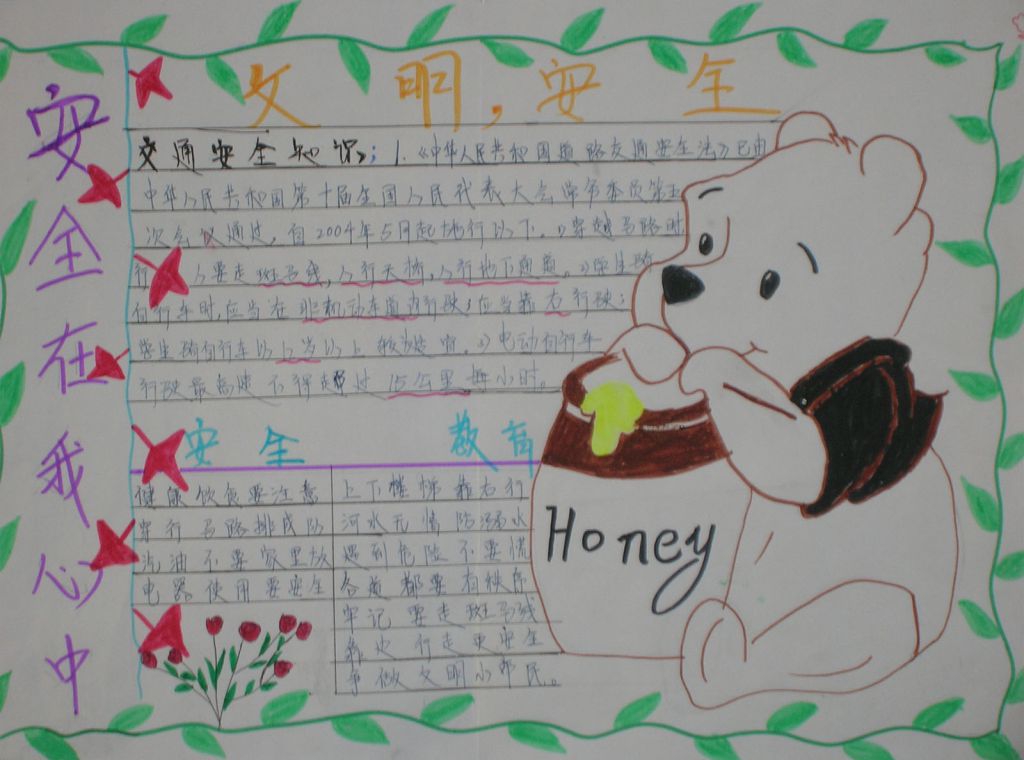 安全在我心中
文明,安全
交通安全知识:1.《中华人民共和国道路交通安全法》已由
中华人民共和国第十届全国人民代表大会常务委员第五
次会议通过,自2004年5月起施行以下.1)穿越马路时
行人要走斑马线,人行天桥,人行地下通道。2)学生骑
自行车时,应当在非机动车道内行驶;应当靠右行驶;
学生骑自行车 以上
行驶最高速不得超过15公里每小时。
安全 教育
健康饮食要注意
穿行马路排成队
汽油不要家里放
电器使用要安全
上下楼梯靠右行
河水无情防溺水
遇到危险不要慌
各道都要有秩序
牢记要走斑马线
行走更安全
争做文明小市民。
Honey